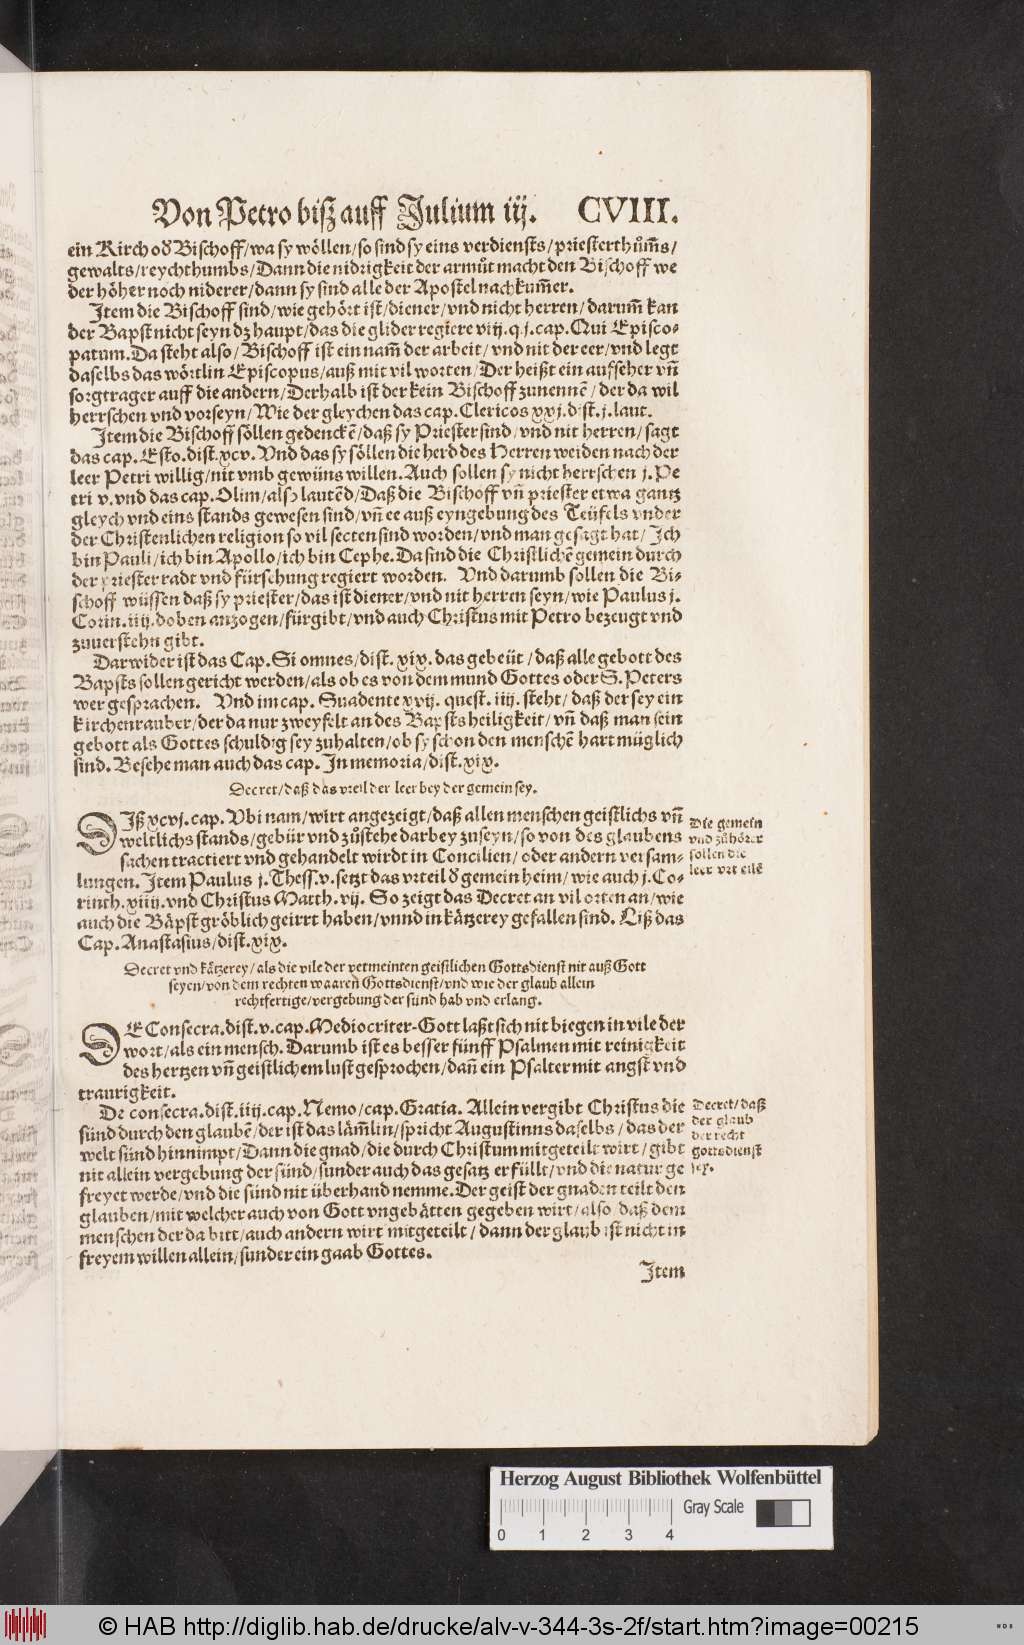 Von Petro biß auff Julium iij. CVIII.
ein Kirch oď Bischoff/wa sy wöllen/so sind sy eins verdiensts/priesterthům̃s/
gewalts/reychthumbs/Dann die nidrigkeit der armůt macht den Bischoff we
der höher noch niderer/dann sy sind alle der Apostel nachkum̃er.
Item die Bischoff sind/wie gehört ist/diener/vnd nicht herren/darum̃ kan
der Bapst nicht seyn dz haupt/das die glider regiere viij.q.j.cap.Qui Episco-
patum.Da steht also/Bischoff ist ein nam̃ der arbeit/vnd nit der eer/vnd legt
daselbs das wörtlin Episcopus/auß mit vil worten/Der heißt ein aufseher vñ
sorgtrager auff die andern/Derhalb ist der kein Bischoff zunennẽ/der da wil
herrschen vnd vorseyn/Wie der gleychen das cap.Clericos xxj.dist.j.laut.
Item die Bischoff söllen gedenckẽ/daß sy Priester sind/vnd nit herren/sagt
das cap.Esto.dist.xcv.Vnd das sy söllen die herd des Herren weiden nach der
leer Petri willig/nit vmb gewüns willen.Auch sollen sy nicht herrschen j.Pe
tri v.vnd das cap.Olim/also lautẽd/Daß die Bischoff vñ priester etwa gantz
gleych vnd eins stands gewesen sind/vñ ee auß eyngebung des Teüfels vnder
der Christenlichen religion so vil secten sind worden/vnd man gesagt hat/Ich
bin Pauli/ich bin Apollo/ich bin Cephe.Da sind die Christlichẽ gemein durch
der priester radt vnd fürschung regiert worden. Vnd darumb sollen die Bi-
schoff wüssen daß sy priester/das ist diener/vnd nit herren seyn/wie Paulus j.
Corin.iiij.doben anzogen/fürgibt/vnd auch Christus mit Petro bezeugt vnd
zuuerstehn gibt.
Darwider ist das Cap.Si omnes/dist.xix.das gebeüt/daß alle gebott des
Bapsts sollen gericht werden/als ob es von dem mund Gottes oder S.Peters
wer gesprachen. Vnd im cap. Suadente xvij. quest. iiij. steht/daß der sey ein
kirchenrauber/der da nur zweyfelt an des Bapsts heiligkeit/vñ daß man sein
gebott als Gottes schuldig sey zuhalten/ob sy schon den menschẽ hart müglich
sind.Besehe man auch das cap.In memoria/dist.xix.
Decret/daß das vrteil der leer bey der gemein sey.
DIß xcvj.cap.Vbi nam/wirt angezeigt/daß allen menschen geistlichs vñ
weltlichs stands/gebür vnd zůstehe darbey zuseyn/so von des glaubens
sachen tractiert vnd gehandelt wirdt in Concilien/oder andern versam-
lungen.Item Paulus j.Thess.v.setzt das vrteil ď gemein heim/wie auch j.Co-
rinth.xiiij.vnd Christus Matth.vij. So zeigt das Decret an vil orten an/wie
auch die Bäpst gröblich geirrt haben/vnnd in kätzerey gefallen sind. Liß das
Cap.Anastasius/dist.xix.
Die gemein
vnd zůhörer
sollen die
leer vrteilẽ
Decret vnd kätzerey/als die vile der vermeinten geistlichen Gottsdienst nit auß Gott
seyen/von dem rechten waaren Gottsdienst/vnd wie der glaub allein
rechtfertige/vergebung der sünd hab vnd erlang.
DE Consecra.dist.v.cap.Mediocriter-Gott laßt sich nit biegen in vile der
wort/als ein mensch.Darumb ist es besser fünff Psalmen mit reinigkeit
des hertzen vñ geistlichem lust gesprochen/dañ ein Psalter mit angst vnd
traurigkeit.
De consecra.dist.iiij.cap.Nemo/cap.Gratia. Allein vergibt Christus die
sünd durch den glaubẽ/der ist das läm̃lin/spricht Augustinns daselbs/das der
welt sünd hinnimpt/Dann die gnad/die durch Christum mitgeteilt wirt/gibt
nit allein vergebung der sünd/sunder auch das gesatz erfüllt/vnd die natur ge
freyet werde/vnd die sünd nit überhand nemme.Der geist der gnaden teilt den
glauben/mit welcher auch von Gott vngebätten gegeben wirt/also daß dem
menschen der da bitt/auch andern wirt mitgeteilt/dann der glaub ist nicht in
freyem willen allein/sunder ein gaab Gottes.
Decret/daß
der glaub
der recht
gottsdienst
sey.
Item
Herzog August Bibliothek Wolfenbüttel
Gray Scale
0 1 2 3 4
© HAB http://diglib.hab.de/drucke/alv-v-344-3s-2f/start.htm?image=00215